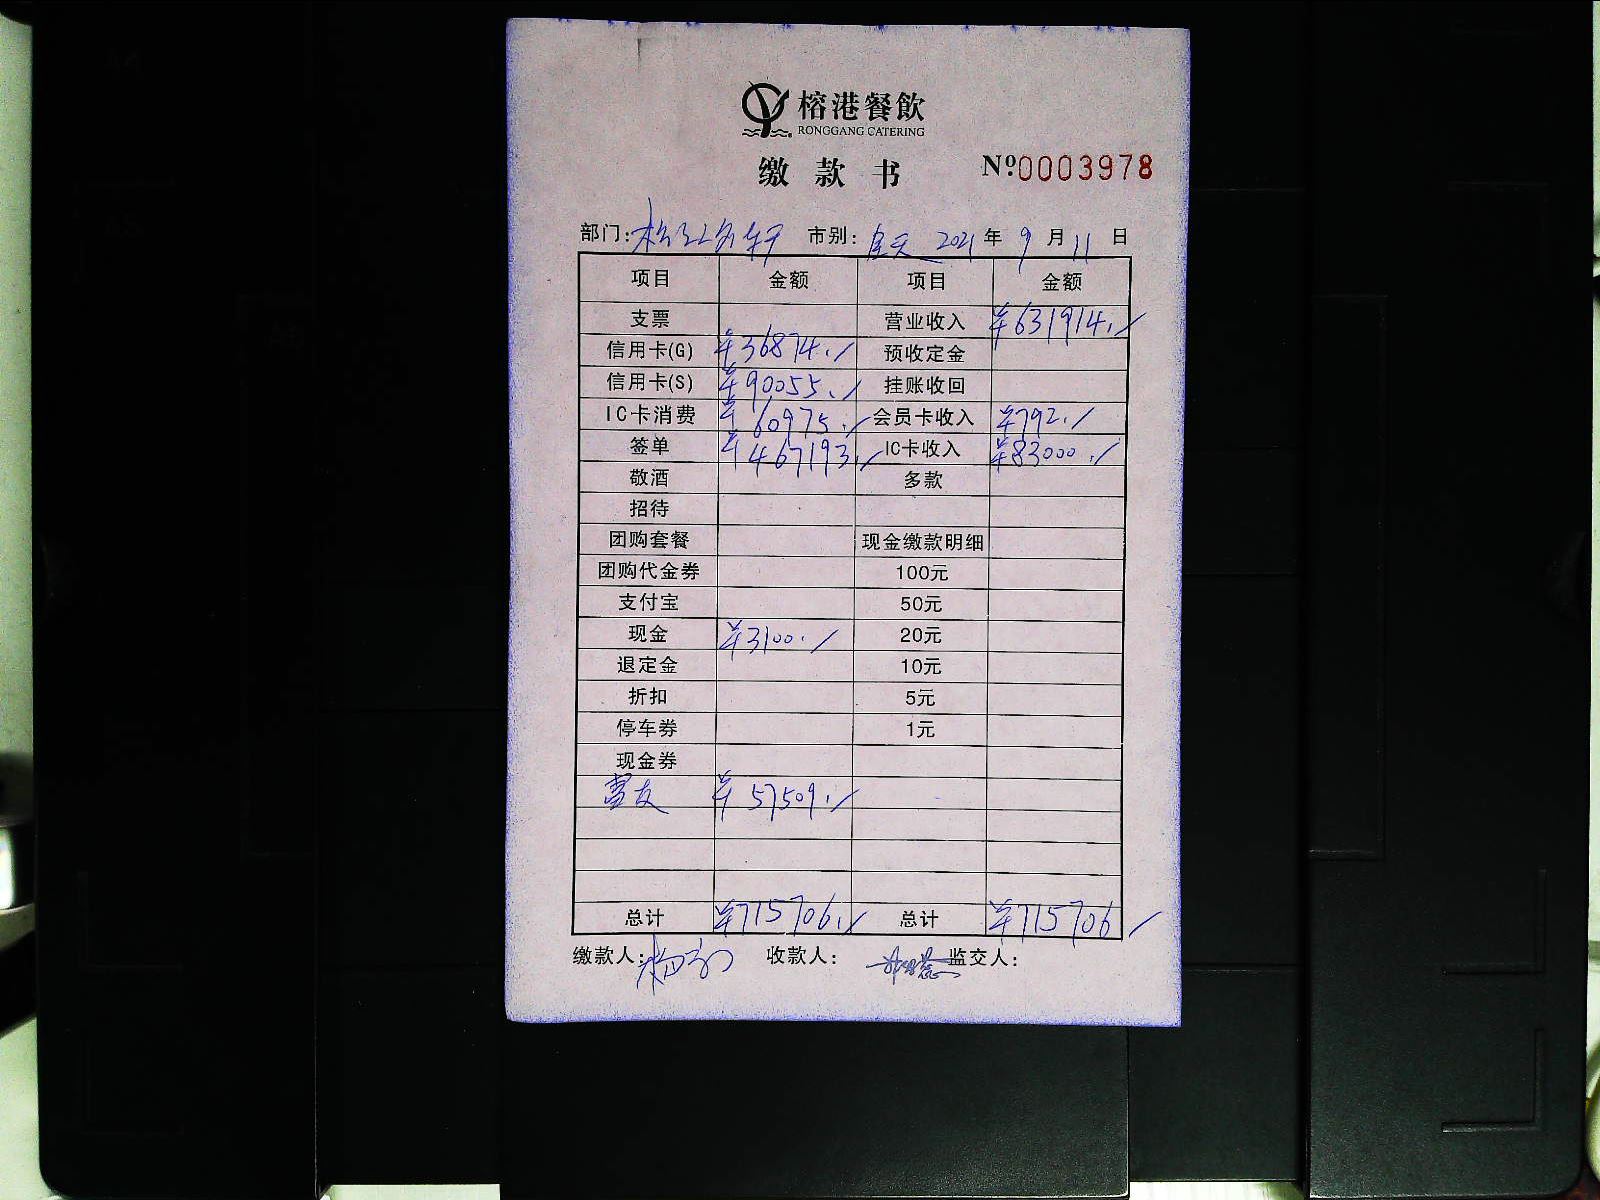 榕港餐飲
RONGGANG CATERING
缴款书 Nº:0003978
部门: 市别: 全天 2021年9月11日
项目 金额 项目 金额
支票 营业收入 ¥631914.
信用卡(G) ¥36874. 预收定金
信用卡(S) ¥90055. 挂账收回
IC卡消费 ¥60975. 会员卡收入 ¥792.
签单 ¥467193. IC卡收入 ¥83000.
敬酒 多款
招待
团购套餐 现金缴款明细
团购代金券 100元
支付宝 50元
现金 ¥3100. 20元
退定金 10元
折扣 5元
停车券 1元
现金券
¥57509.
总计 ¥715706. 总计 ¥715706
缴款人: 收款人: 监交人: